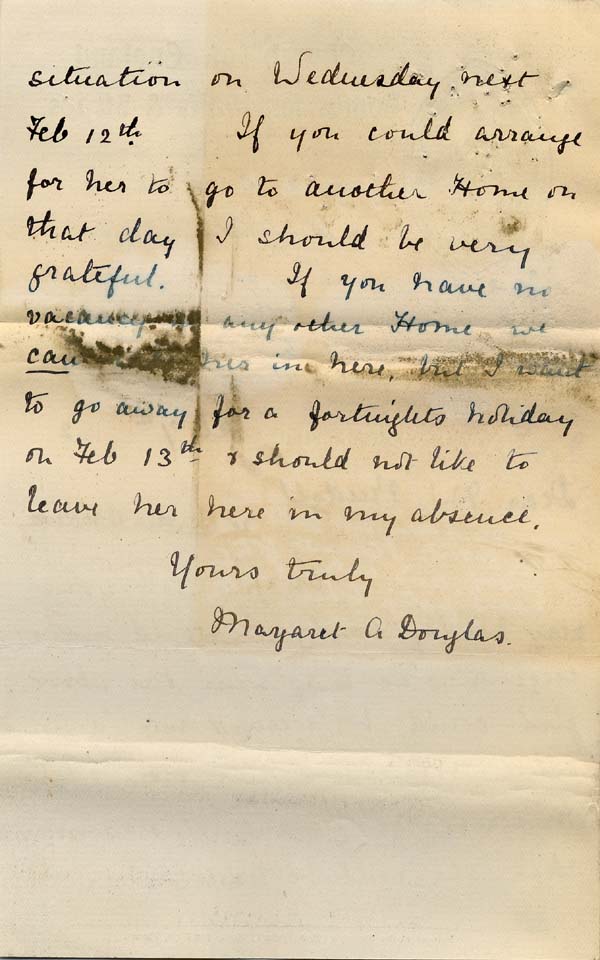 situation on Wednesday next
Feb 12th If you could arrange
for her to go to another Home on
that day I should be very
grateful. If you have no
vacancy in any other Home we
can her in here, but I want
to go away for a fortnights holiday
on Feb 13th & should not like to
leave her here in my absence.
Yours truly
Margaret A Douglas.